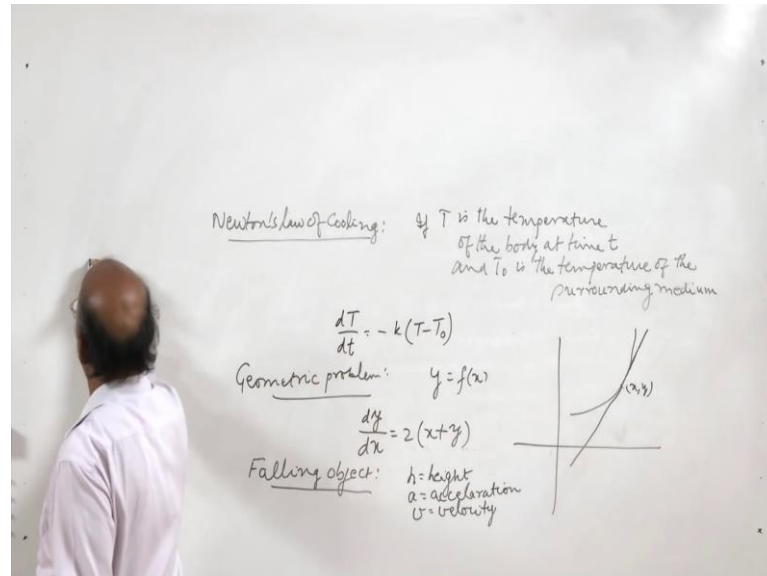 Newton's law of Cooling: If T is the temperature
of the body at time t
and T₀ is the temperature of the
surrounding medium
dT/dt = - k(T-T₀)
Geometric problem: y = f(x)
(x,y)
dy/dx = 2(x+y)
Falling object: h = height
a = acceleration
v = velocity